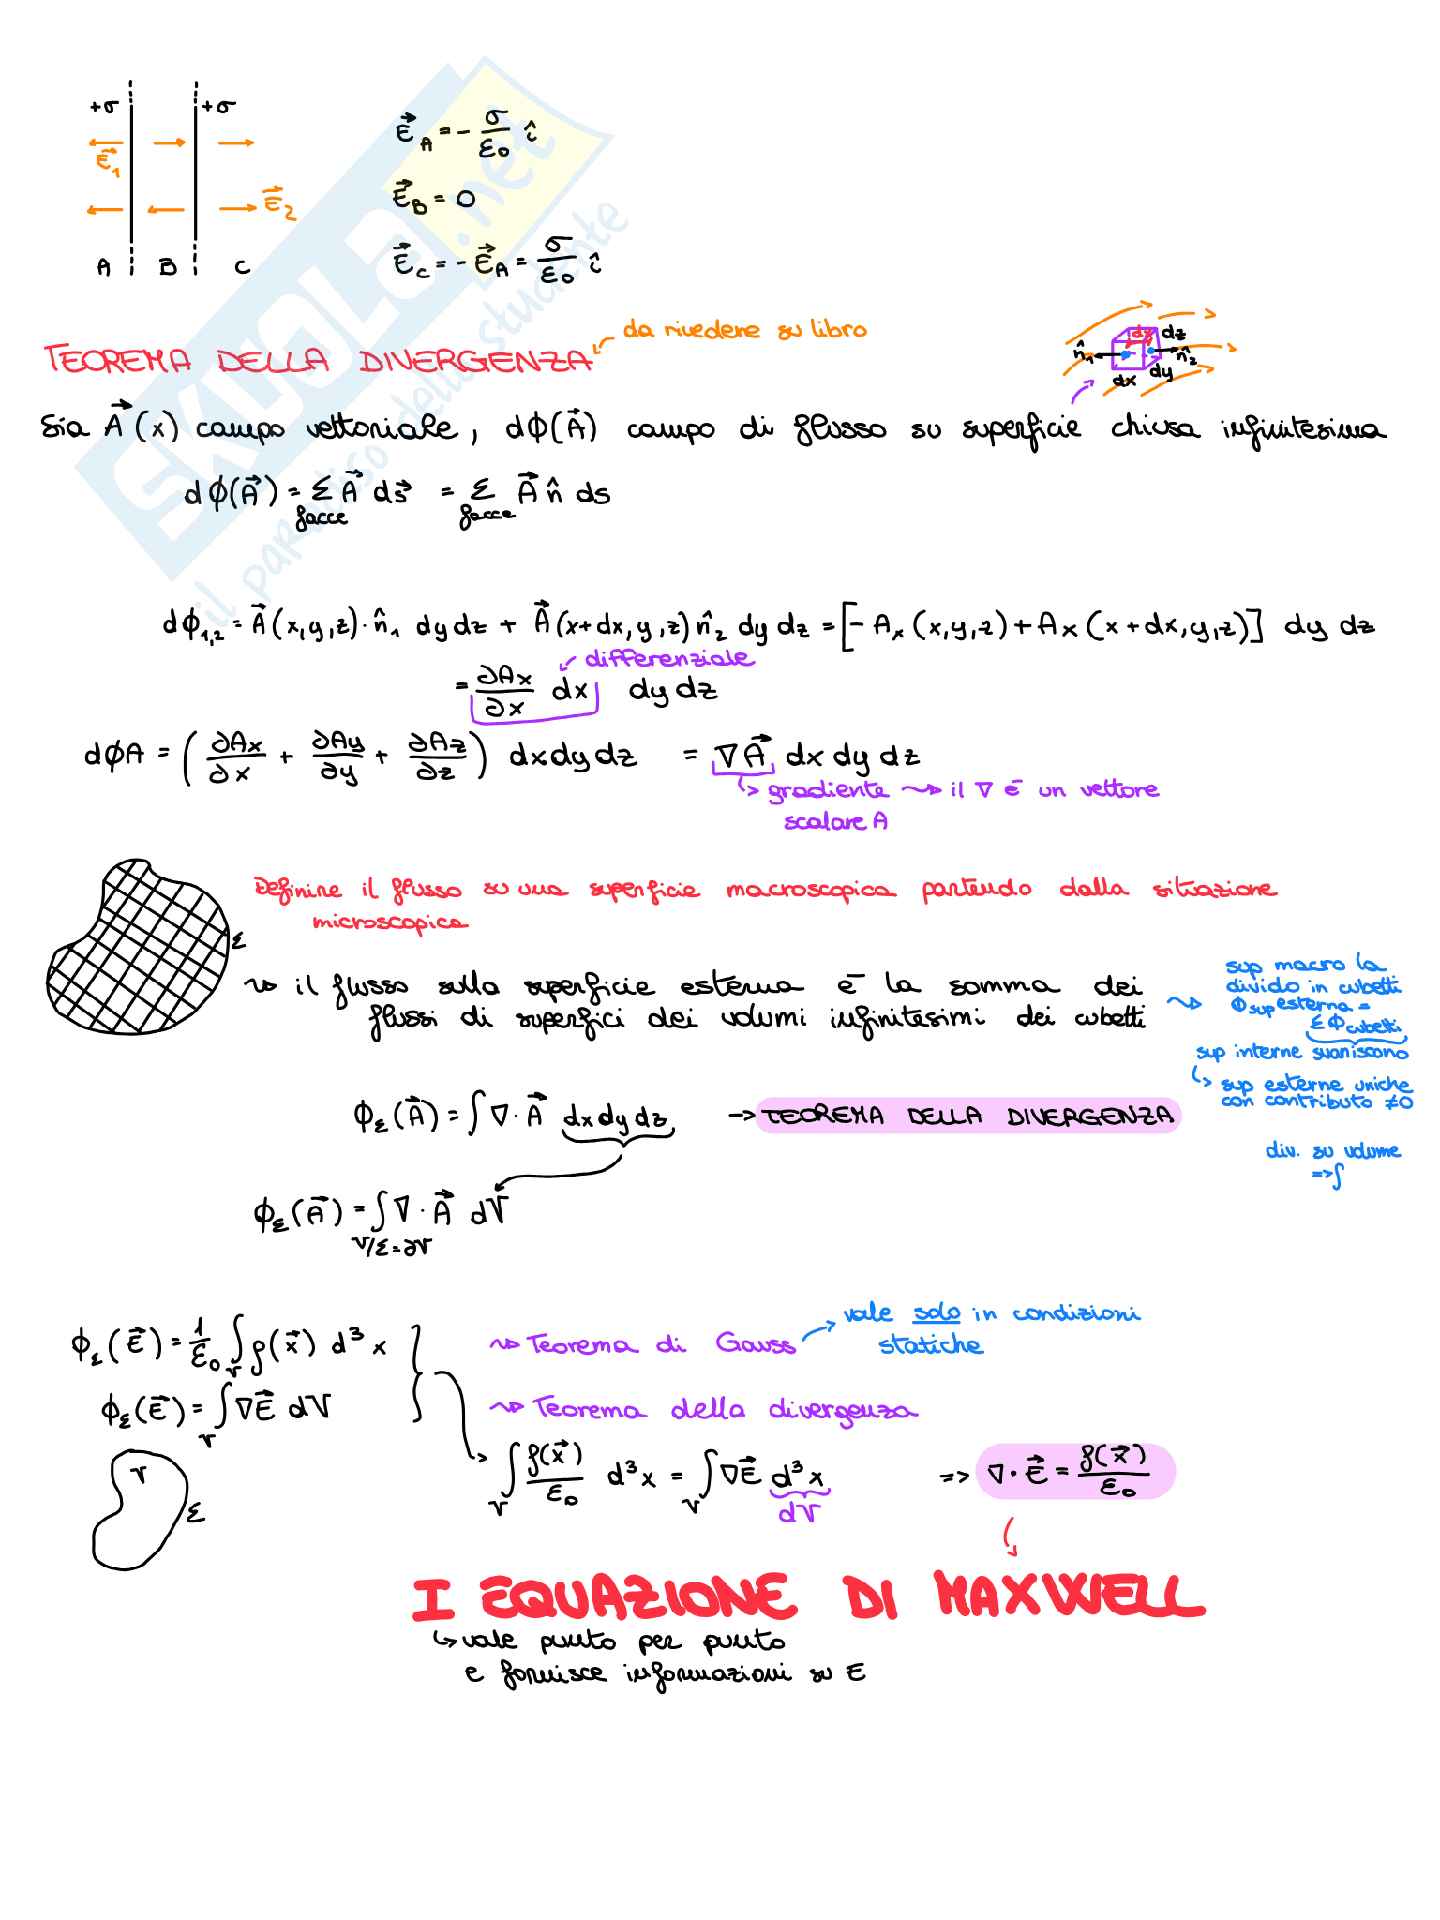 +σ +σ
E⃗₁
E⃗₂
A B C
E⃗_A = - σ/ε₀ î
E⃗_B = 0
E⃗_C = - E⃗_A = σ/ε₀ î
SKUOLA.net
il paradiso dello studente
TEOREMA DELLA DIVERGENZA
da rivedere su libro
n̂₁ dz dz n̂₂
dx dy
Sia A⃗(x) campo vettoriale, dϕ(A⃗) campo di flusso su superficie chiusa infinitesima
dϕ(A⃗) = Σ A⃗ ds⃗ = Σ A⃗ n̂ ds
facce facce
dϕ₁,₂ = A⃗(x,y,z)·n̂₁ dydz + A⃗(x+dx,y,z) n̂₂ dy dz = [- Aₓ(x,y,z) + Aₓ(x+dx,y,z)] dy dz
differenziale
= ∂Aₓ/∂x dx dy dz
dϕA = (∂Ax/∂x + ∂Ay/∂y + ∂Az/∂z) dxdydz = ∇A⃗ dx dy dz
↳ gradiente ⇝ il ∇ è un vettore
scalare A
Definire il flusso su una superficie macroscopica partendo dalla situazione
microscopica
Σ
⇝ il flusso sulla superficie esterna è la somma dei
flussi di superfici dei volumi infinitesimi dei cubetti
⇝ sup macro la
divido in cubetti
Φ_sup esterna =
ΣΦ_cubetti
sup interne svaniscono
↳ sup esterne uniche
con contributo ≠0
div. su volume
=>∫
ϕ_Σ(A⃗) = ∫∇·A⃗ dxdydz -> TEOREMA DELLA DIVERGENZA
ϕ_Σ(A⃗) = ∫∇·A⃗ dV
V/Σ=∂V
ϕ_Σ(E⃗) = 1/ε₀ ∫_V ρ(x⃗) d³x
⇝ Teorema di Gauss
vale solo in condizioni
statiche
ϕ_Σ(E⃗) = ∫_V ∇E⃗ dV
⇝ Teorema della divergenza
∫_V ρ(x⃗)/ε₀ d³x = ∫_V ∇E⃗ d³x => ∇·E⃗ = ρ(x⃗)/ε₀
dV
V
Σ
I EQUAZIONE DI MAXWELL
↳ vale punto per punto
e fornisce informazioni su E